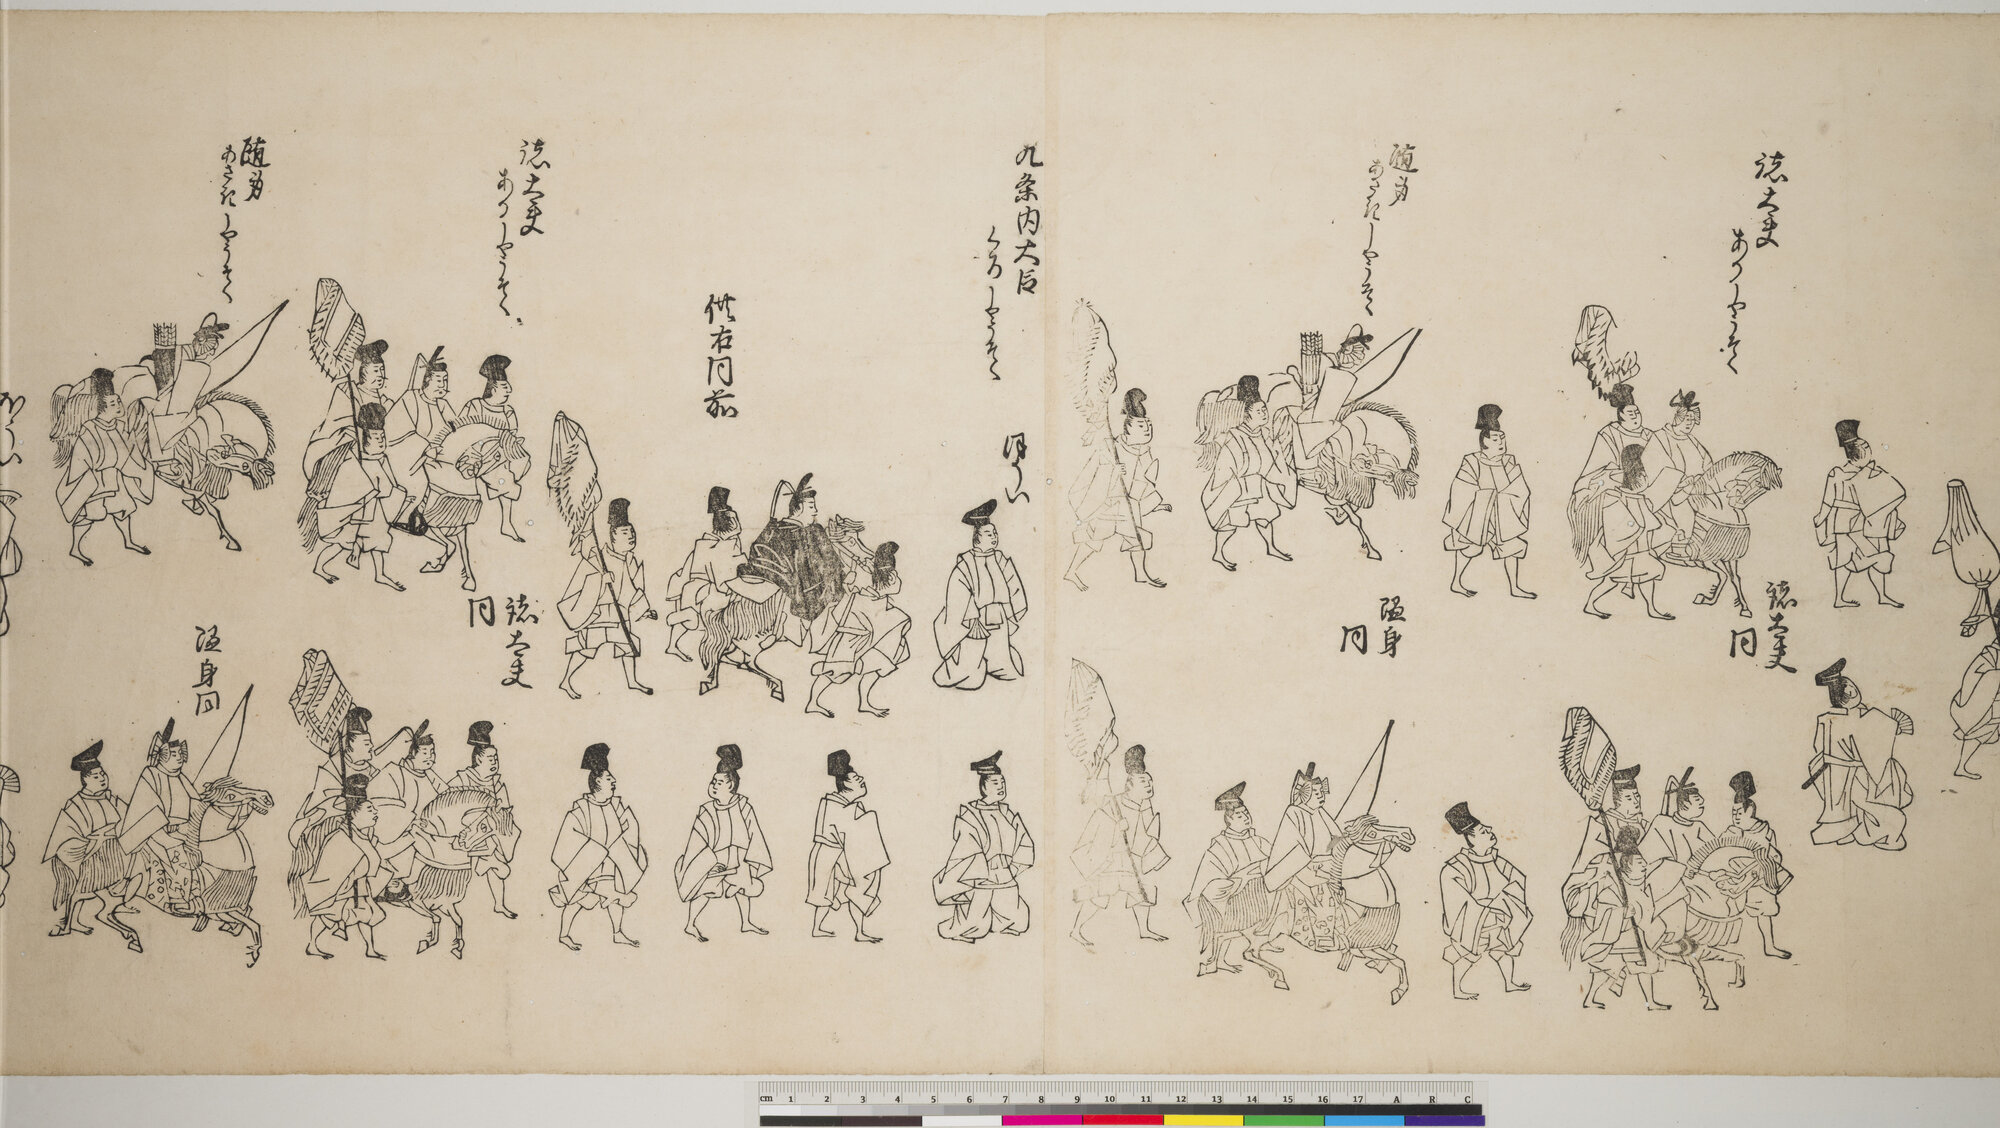 諸大夫
あかしやうそく
諸大夫
同
随身
あさきしやうそく
随身
同
九条内大臣
くろしやうそく
ほうい
供右同前
諸大夫
あかしやうそく
諸大夫
同
随身
あさきしやうそく
随身
同
ほうい
cm 1 2 3 4 5 6 7 8 9 10 11 12 13 14 15 16 17 A R C